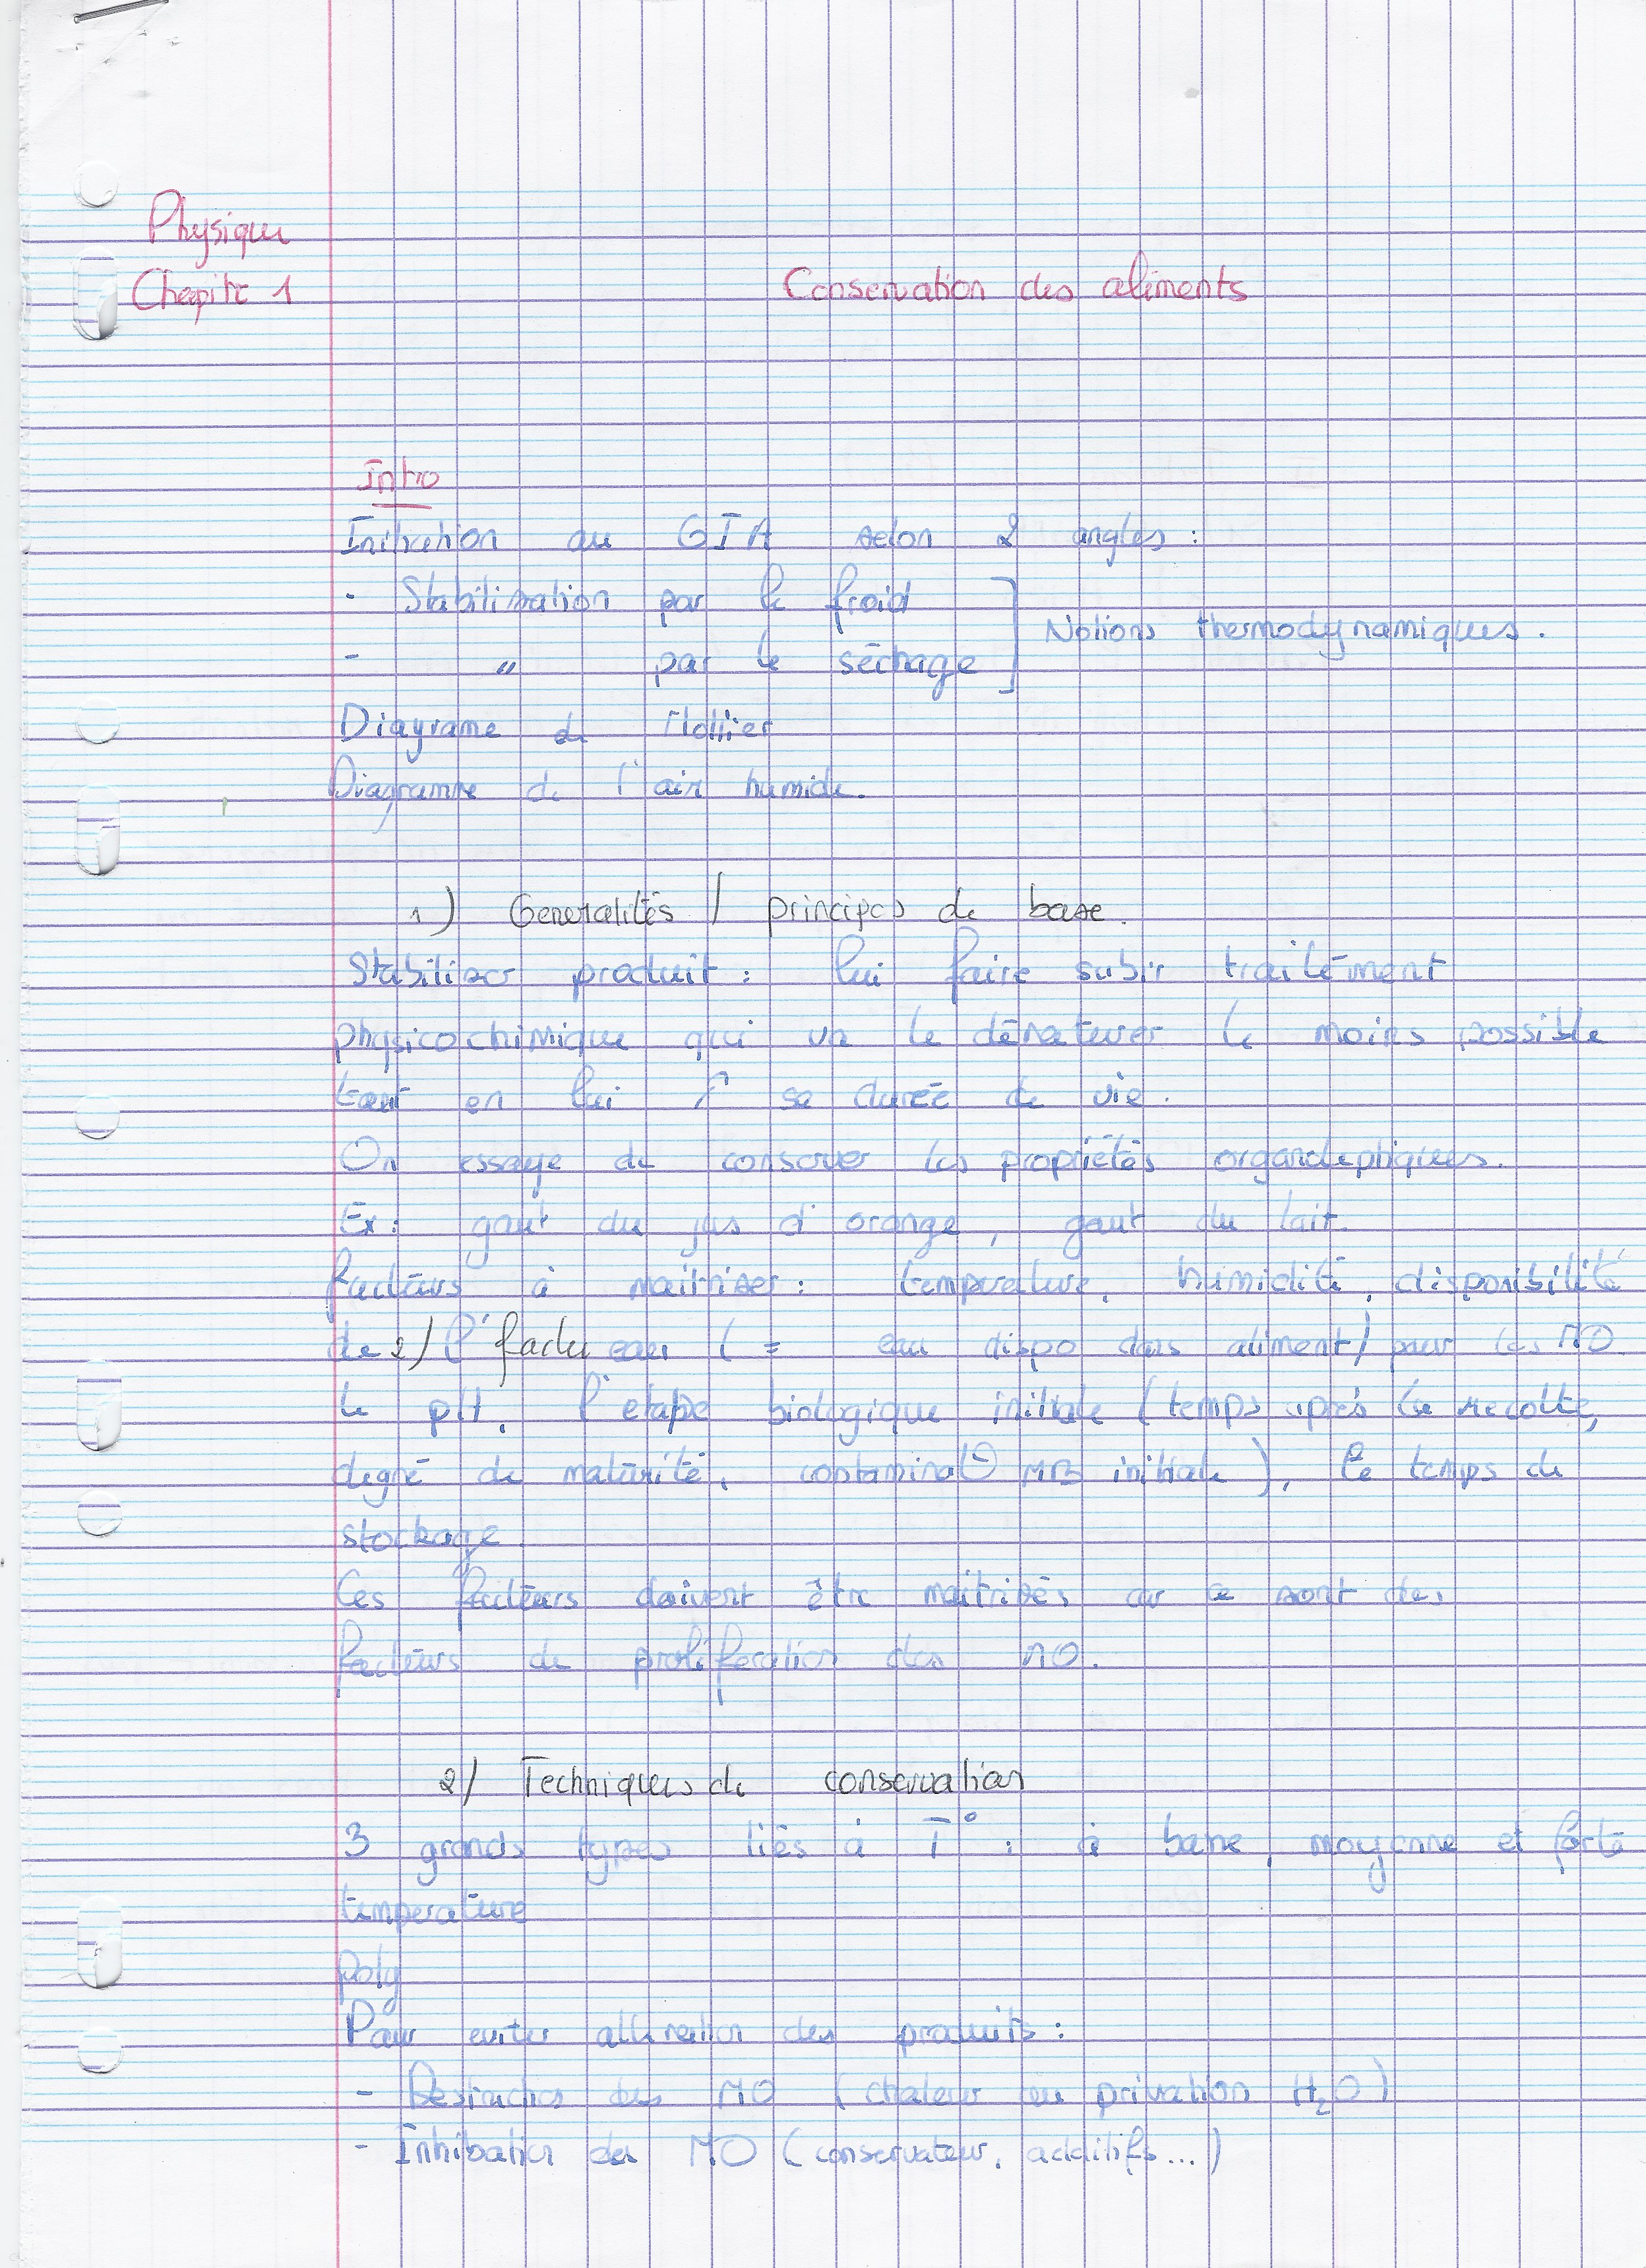 Physique
Chapitre 1
Conservation des aliments
Intro
Initiation au GIA selon 2 angles :
- Stabilisation par le froid
- " par le séchage
Notions thermodynamiques.
Diagrame de Mollier
Diagramme de l'air humide.
1) Generalités / principes de base.
Stabiliser produit : lui faire subir traitement
physicochimique qui va le dénaturer le moins possible
tout en lui ↗ sa durée de vie.
On essaye de conserver les propriétés organoleptiques.
Ex : gout du jus d'orange, gout du lait.
facteurs à maitriser : temperature, humidité, disponibilité
de 2) l' facteu eau ( = eau dispo dans aliment) pour les MO
le pH, l'etape biologique initiale (temps après la récolte,
degré de maturité, contaminat° MB initiale), le temps de
stockage.
Ces facteurs doivent être maitrisés car ce sont des
facteurs de proliferation des MO.
2) Techniques de conservation
3 grands types liés à T° : à basse, moyenne et forte
temperature
poly
Pour eviter alteration des produits :
- Destruction des MO (chaleur ou privation H₂O)
- Inhibation des MO (conservateur, additifs...)